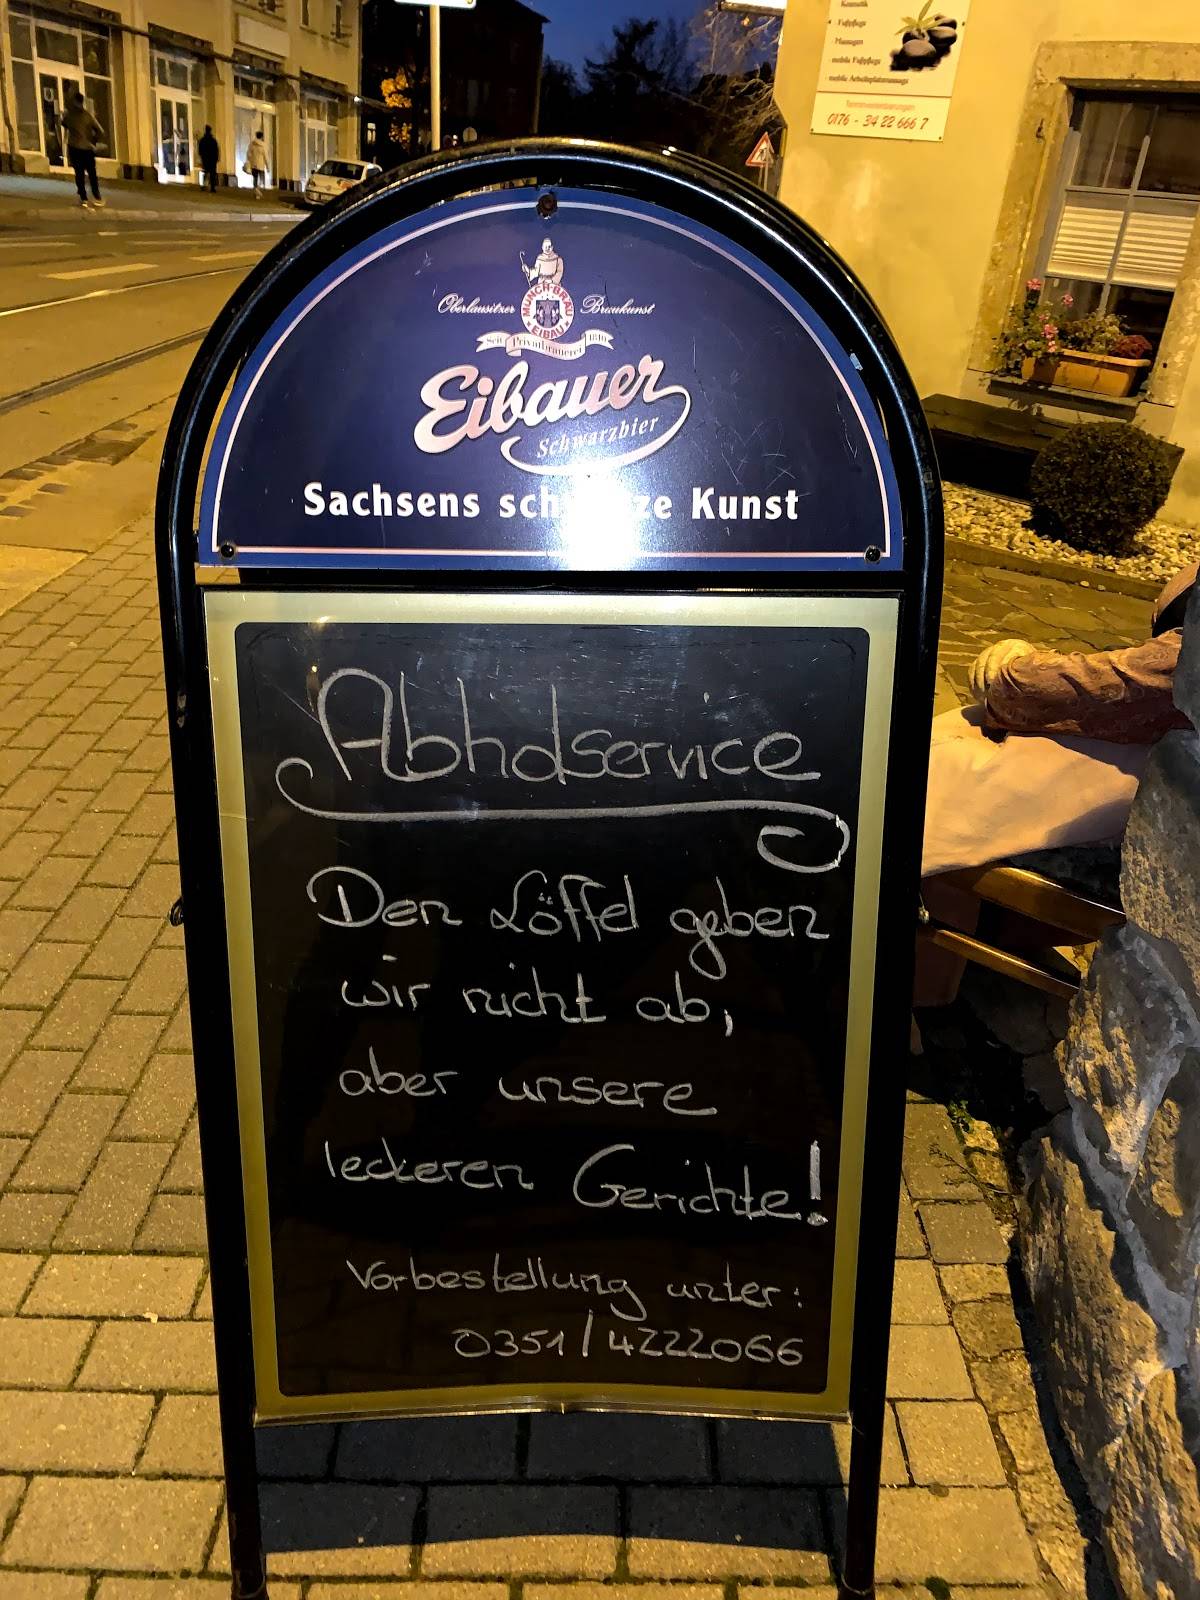 Kosmetik
· Fußpflege
· Massagen
· mobile Fußpflege
· mobile Arbeitsplatzmassage
Terminvereinbarungen
0176 - 34 22 666 7
Oberlausitzer Braukunst
MÜNCH-BRÄU
EIBAU
Seit Privatbrauerei 1810
Eibauer
Schwarzbier
Sachsens Kunst
Abholservice
Den Löffel geben
wir nicht ab,
aber unsere
leckeren Gerichte!
Vorbestellung unter:
0351/4222066